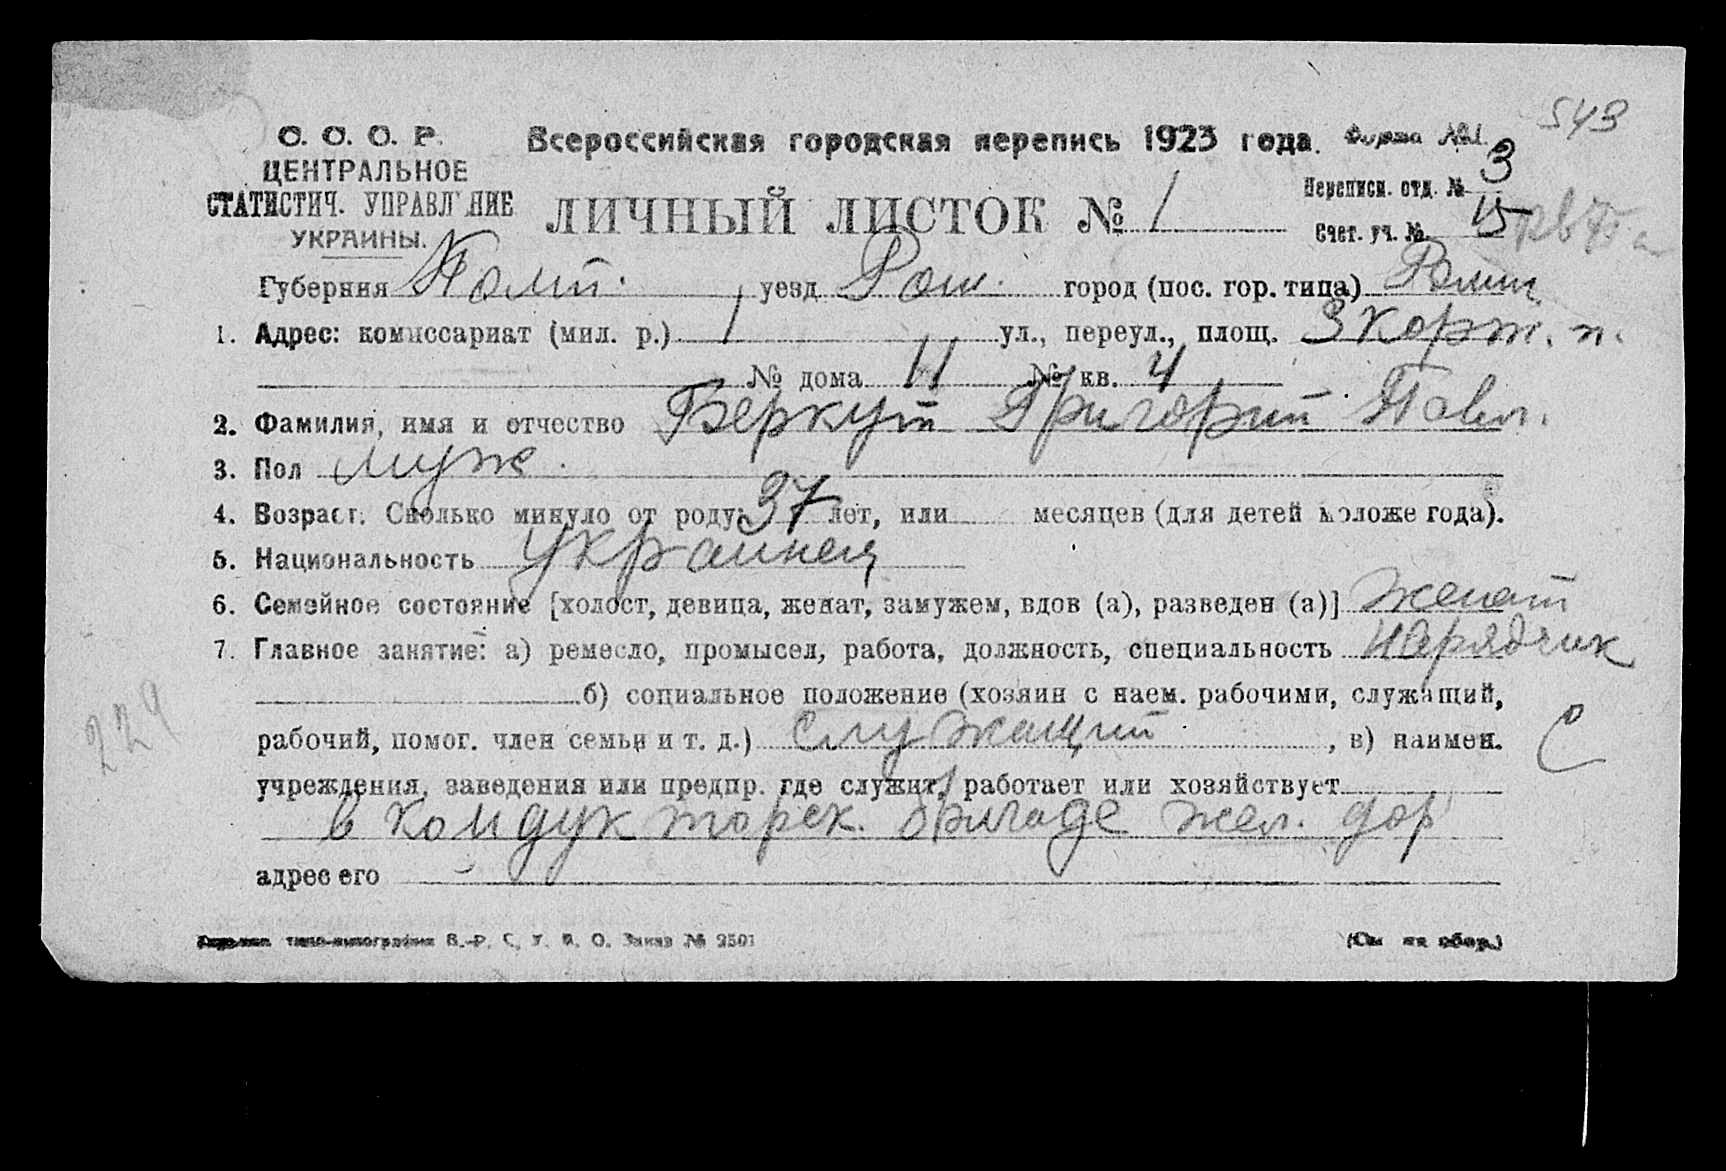 С. С. С. Р. Всероссийская городская перепись 1923 года. Форма №1. 543
ЦЕНТРАЛЬНОЕ
СТАТИСТИЧ. УПРАВЛ НИЕ
УКРАИНЫ.
ЛИЧНЫЙ ЛИСТОК № 1
Переписн. отд. № 3
Счет. уч. № 15
Губерния Полт. уезд Ром. город (пос. гор. типа) Ромны
1. Адрес: комиссариат (мил. р.) 1 ул., переул., площ. 3 Корж. п.
№ дома 11 № кв. 4
2. Фамилия, имя и отчество Беркут Григорий Павл.
3. Пол муж.
4. Возраст. Сколько минуло от роду: 37 лет, или месяцев (для детей моложе года).
5. Национальность Украинец
6. Семейное состояние [холост, девица, женат, замужем, вдов (а), разведен (а)] женат
7. Главное занятие: а) ремесло, промысел, работа, должность, специальность нарядчик
б) социальное положение (хозяин с наем. рабочими, служащий,
рабочий, помог. член семьи и т. д.) Служащий, в) наимен.
учреждения, заведения или предпр. где служит, работает или хозяйствует
в кондукторск. бригаде жел. дор
адрес его
229
С
типо-литография В.-Р. С. У. В. О. Заказ № 2501 (См на обор.)